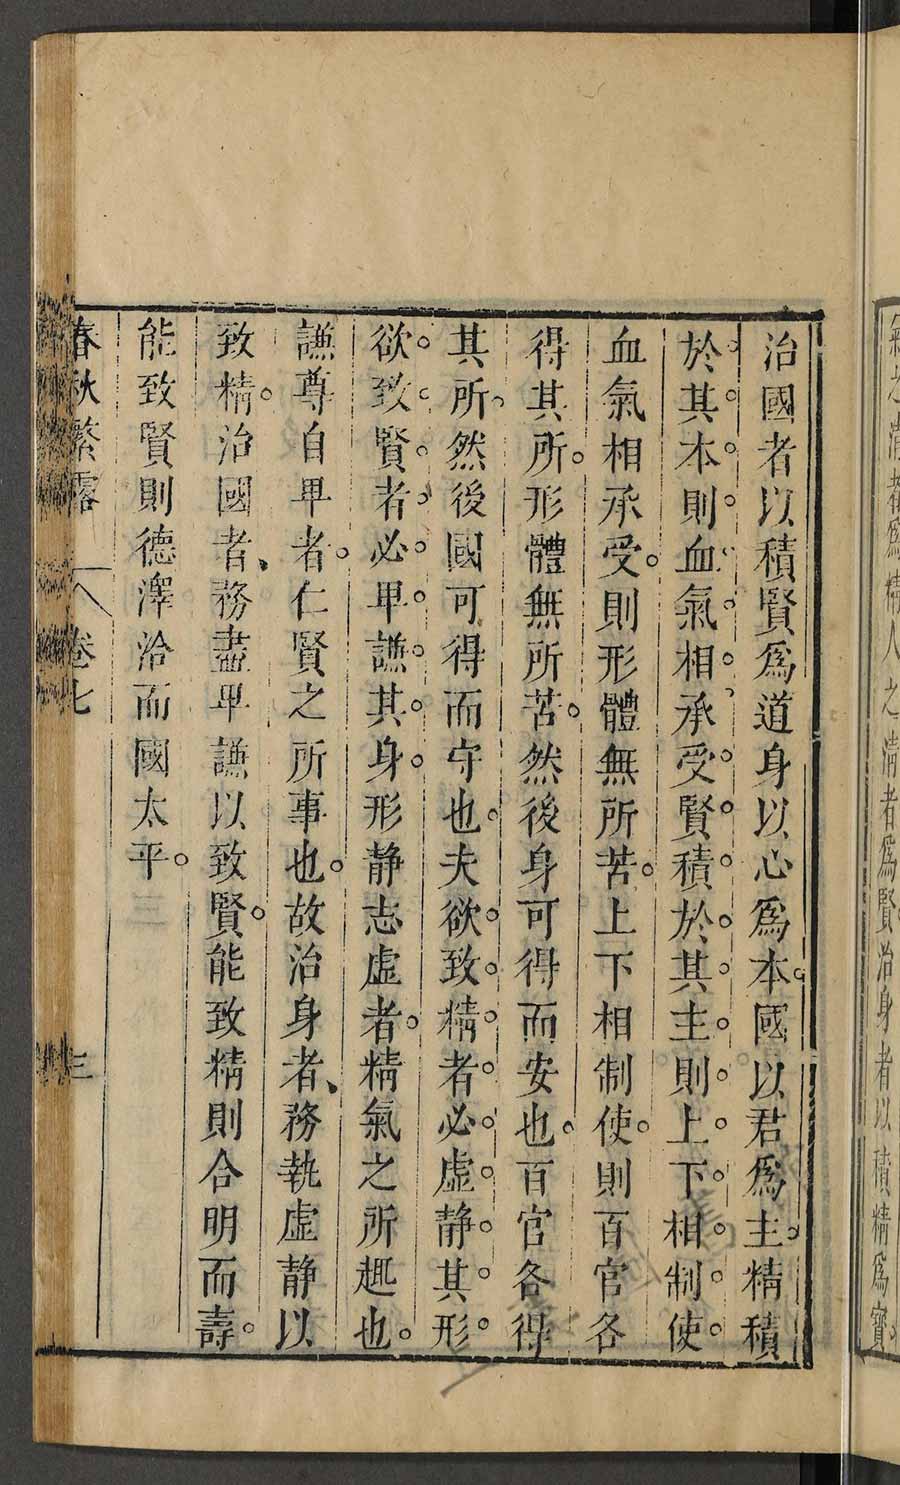 氣之清者爲精人之清者爲賢治身者以積精爲寶
治國者以積賢爲道身以心爲本國以君爲主精積
於其本則血氣相承受賢積於其主則上下相制使
血氣相承受則形體無所苦上下相制使則百官各
得其所形體無所苦然後身可得而安也百官各得
其所然後國可得而守也夫欲致精者必虛靜其形
欲致賢者必卑謙其身形静志虛者精氣之所趣也
謙尊自卑者仁賢之所事也故治身者務執虛静以
致精治國者務盡卑謙以致賢能致精則合明而壽
能致賢則德澤洽而國太平
春秋繁露 卷七 三